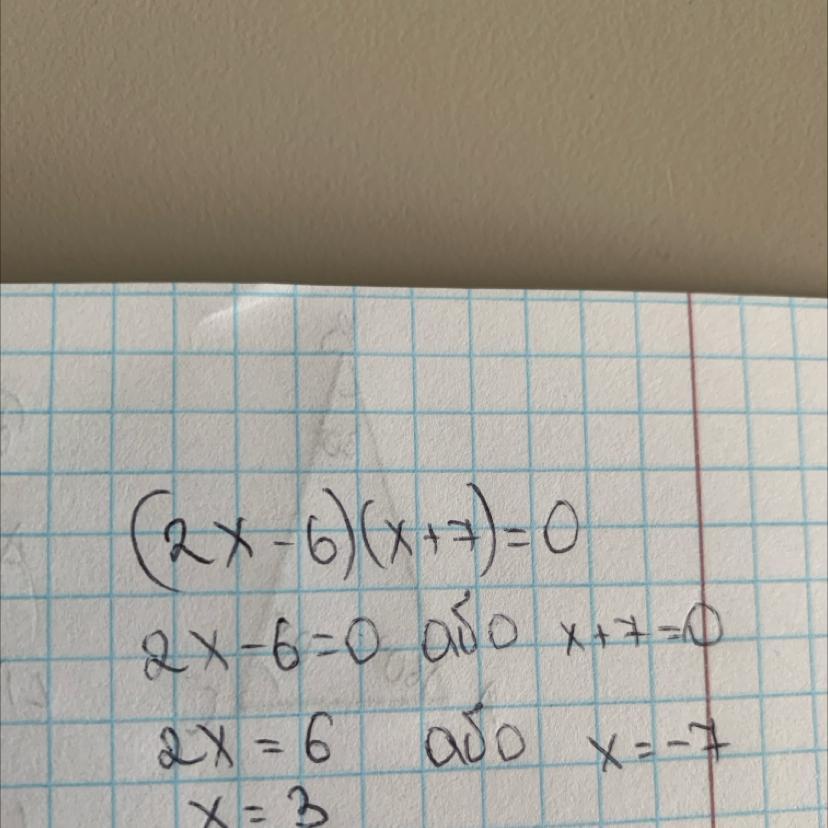 (2x-6)(x+7)=0
2x-6=0 або x+7=0
2x=6 або x=-7
x=3